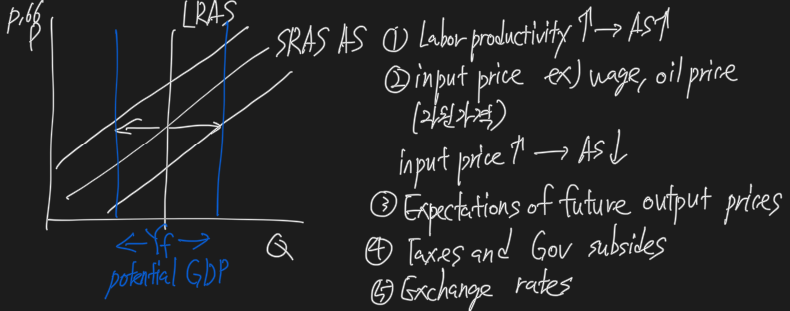 P
LRAS
SRAS AS
Q
Yf
potential GDP
① Labor productivity ↑ → AS↑
② input price ex) wage, oil price
(자원가격)
input price ↑ → AS↓
③ Expectations of future output prices
④ Taxes and Gov subsides
⑤ Exchange rates